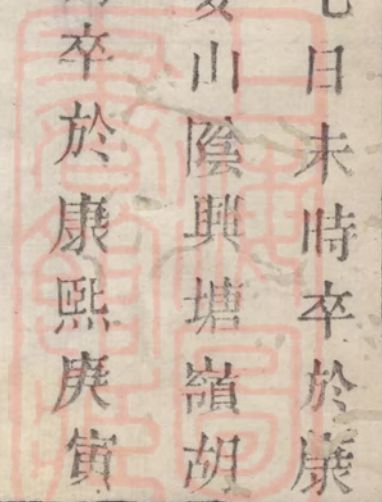 日未時卒於康
山陰興塘嶺胡
卒於康熙庚寅